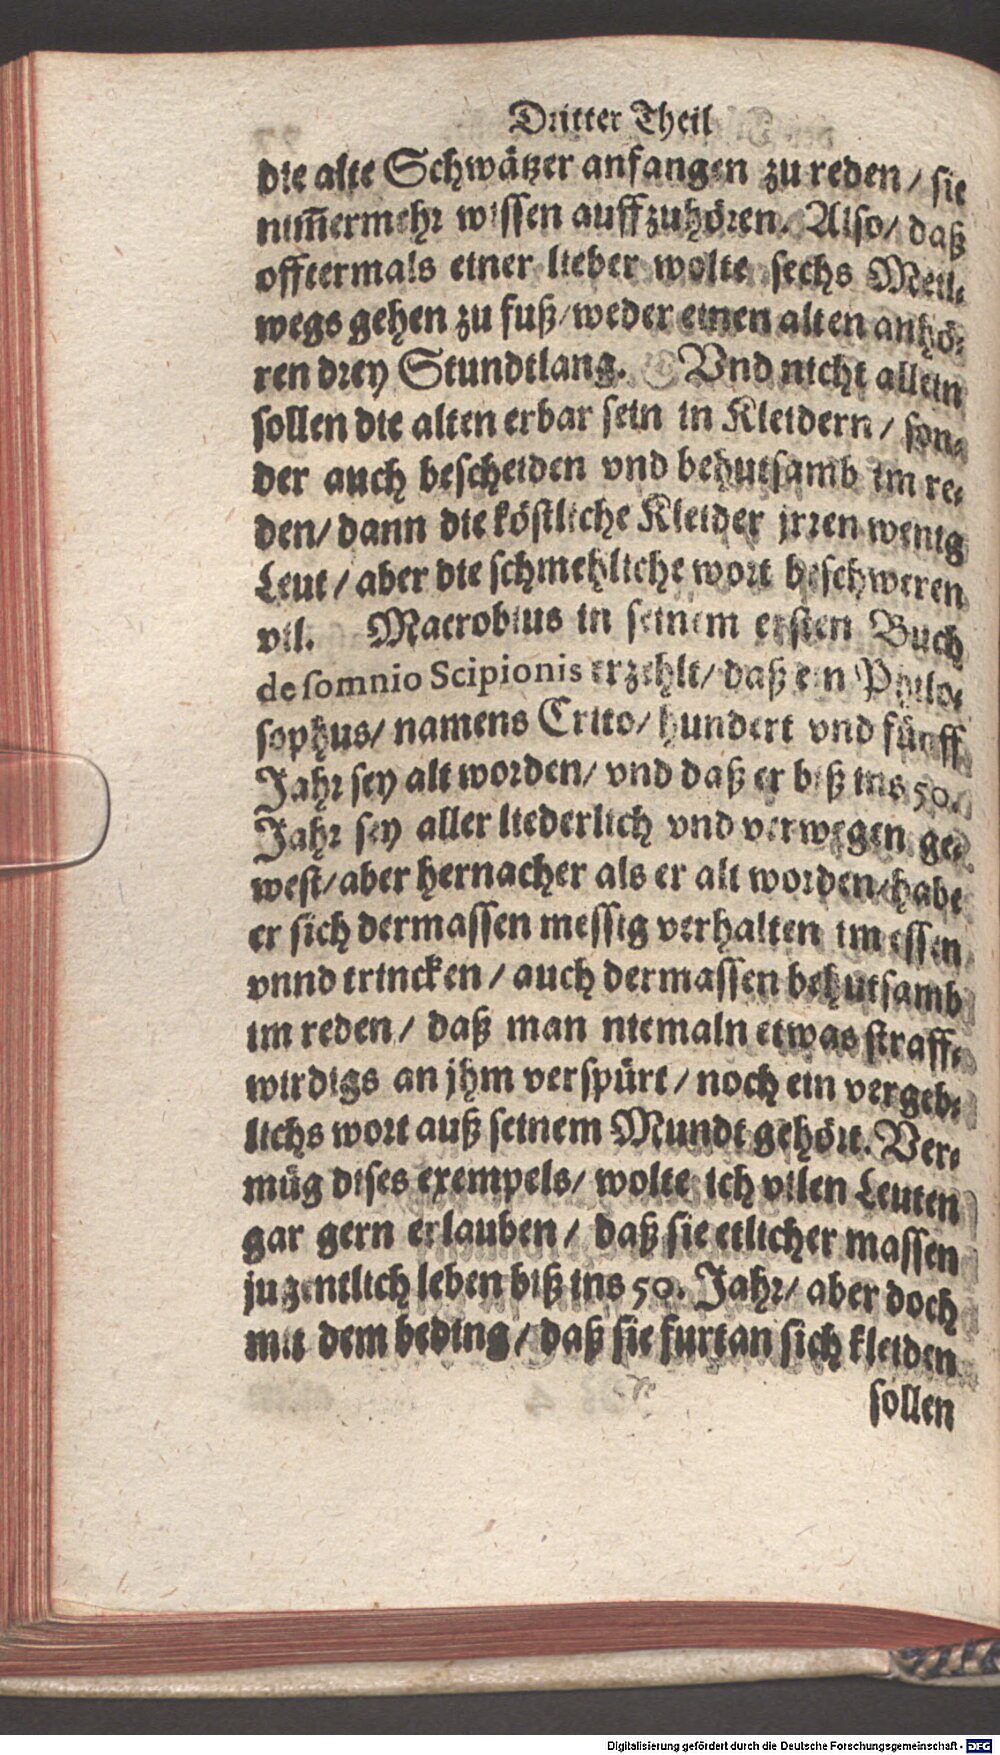 Dritter Theil
die alte Schwätzer anfangen zu reden / sie
nim̃ermehr wissen auffzuhören. Also / daß
offtermals einer lieber wolte sechs Meil-
wegs gehen zu fuß / weder einen alten anhö-
ren drey Stundtlang. Vnd nicht allein
sollen die alten erbar sein in Kleidern / son-
der auch bescheiden vnd behutsamb im re-
den / dann die köstliche Kleider jrren wenig
Leut / aber die schmehliche wort beschweren
vil. Macrobius in seinem ersten Buch
de somnio Scipionis erzehlt / daß ein Philo-
sophus / namens Crito / hundert vnd fünff
Jahr sey alt worden / vnd daß er biß ins 50.
Jahr sey aller liederlich vnd verwegen ge-
west / aber hernacher als er alt worden / habe
er sich dermassen messig verhalten im essen
vnnd trincken / auch dermassen behutsamb
im reden / daß man niemaln etwas straff-
wirdigs an jhm verspürt / noch ein vergeb-
lichs wort auß seinem Mundt gehört. Ver-
müg dises exempels / wolte ich vilen Leuten
gar gern erlauben / daß sie etlicher massen
jugentlich leben biß ins 50. Jahr / aber doch
mit dem beding / daß sie furtan sich kleiden
sollen
Digitalisierung gefördert durch die Deutsche Forschungsgemeinschaft - DFG